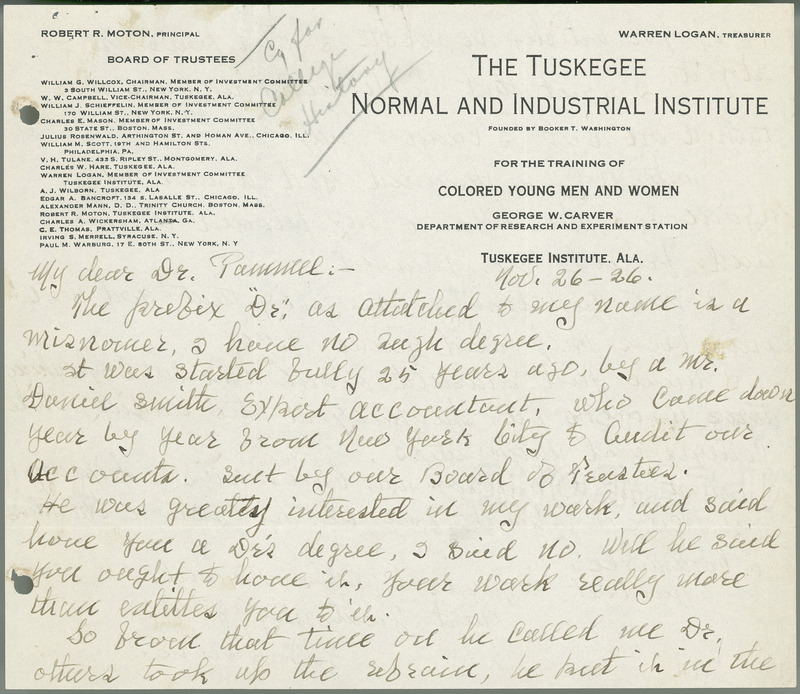 ROBERT R. MOTON, PRINCIPAL
WARREN LOGAN, TREASURER
Cy for
College
History
BOARD OF TRUSTEES
WILLIAM G. WILLCOX, CHAIRMAN, MEMBER OF INVESTMENT COMMITTEE
3 SOUTH WILLIAM ST., NEW YORK, N. Y.
W. W. CAMPBELL, VICE-CHAIRMAN, TUSKEGEE, ALA.
WILLIAM J. SCHIEFFELIN, MEMBER OF INVESTMENT COMMITTEE
170 WILLIAM ST., NEW YORK, N. Y.
CHARLES E. MASON, MEMBER OF INVESTMENT COMMITTEE
30 STATE ST., BOSTON, MASS.
JULIUS ROSENWALD, ARTHINGTON ST. AND HOMAN AVE., CHICAGO, ILL.
WILLIAM M. SCOTT, 19TH AND HAMILTON STS.
PHILADELPHIA, PA.
V. H. TULANE, 433 S. RIPLEY ST., MONTGOMERY, ALA.
CHARLES W. HARE, TUSKEGEE, ALA.
WARREN LOGAN, MEMBER OF INVESTMENT COMMITTEE
TUSKEGEE INSTITUTE, ALA.
A. J. WILBORN, TUSKEGEE, ALA
EDGAR A. BANCROFT, 134 S. LASALLE ST., CHICAGO, ILL.
ALEXANDER MANN, D. D., TRINITY CHURCH, BOSTON, MASS.
ROBERT R. MOTON, TUSKEGEE INSTITUTE, ALA.
CHARLES A. WICKERSHAM, ATLANTA, GA.
C. E. THOMAS, PRATTVILLE, ALA.
IRVING S. MERRELL, SYRACUSE, N. Y.
PAUL M. WARBURG, 17 E. 80TH ST., NEW YORK, N. Y
THE TUSKEGEE
NORMAL AND INDUSTRIAL INSTITUTE
FOUNDED BY BOOKER T. WASHINGTON
FOR THE TRAINING OF
COLORED YOUNG MEN AND WOMEN
GEORGE W. CARVER
DEPARTMENT OF RESEARCH AND EXPERIMENT STATION
TUSKEGEE INSTITUTE, ALA.
My dear Dr. Pammel:- Nov. 26-26.
The prefix "Dr", as attatched to my name is a
misnomer, I have no such degree.
It was started fully 25 years ago, by a Mr.
Daniel Smith, Expert accountant, who came down
year by year from New York City to audit our
accounts. sent by our Board of Trustees.
He was greatly interested in my work, and said
have you a Dr's degree, I said no. Well he said
you ought to have it, your work really more
than entitles you to it.
So from that time on he called me Dr,
others took up the refrain, he put it in the